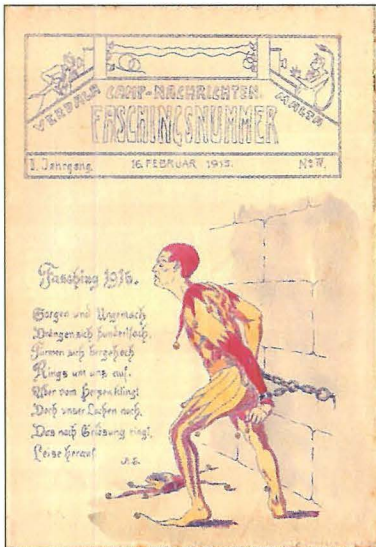 CAMP-NACHRICHTEN.
VERDALA MALTA
FASCHINGSNUMMER
I. Jahrgang. 16. FEBRUAR 1915. No IV.
Fasching 1915.
Sorgen und Ungemach
Drängen sich hundertfach,
Türmen sich bergehoch
Rings um uns auf.
Aber vom Herzen klingt
Doch unser Lachen noch,
Das nach Erlösung ringt,
Leise herauf.